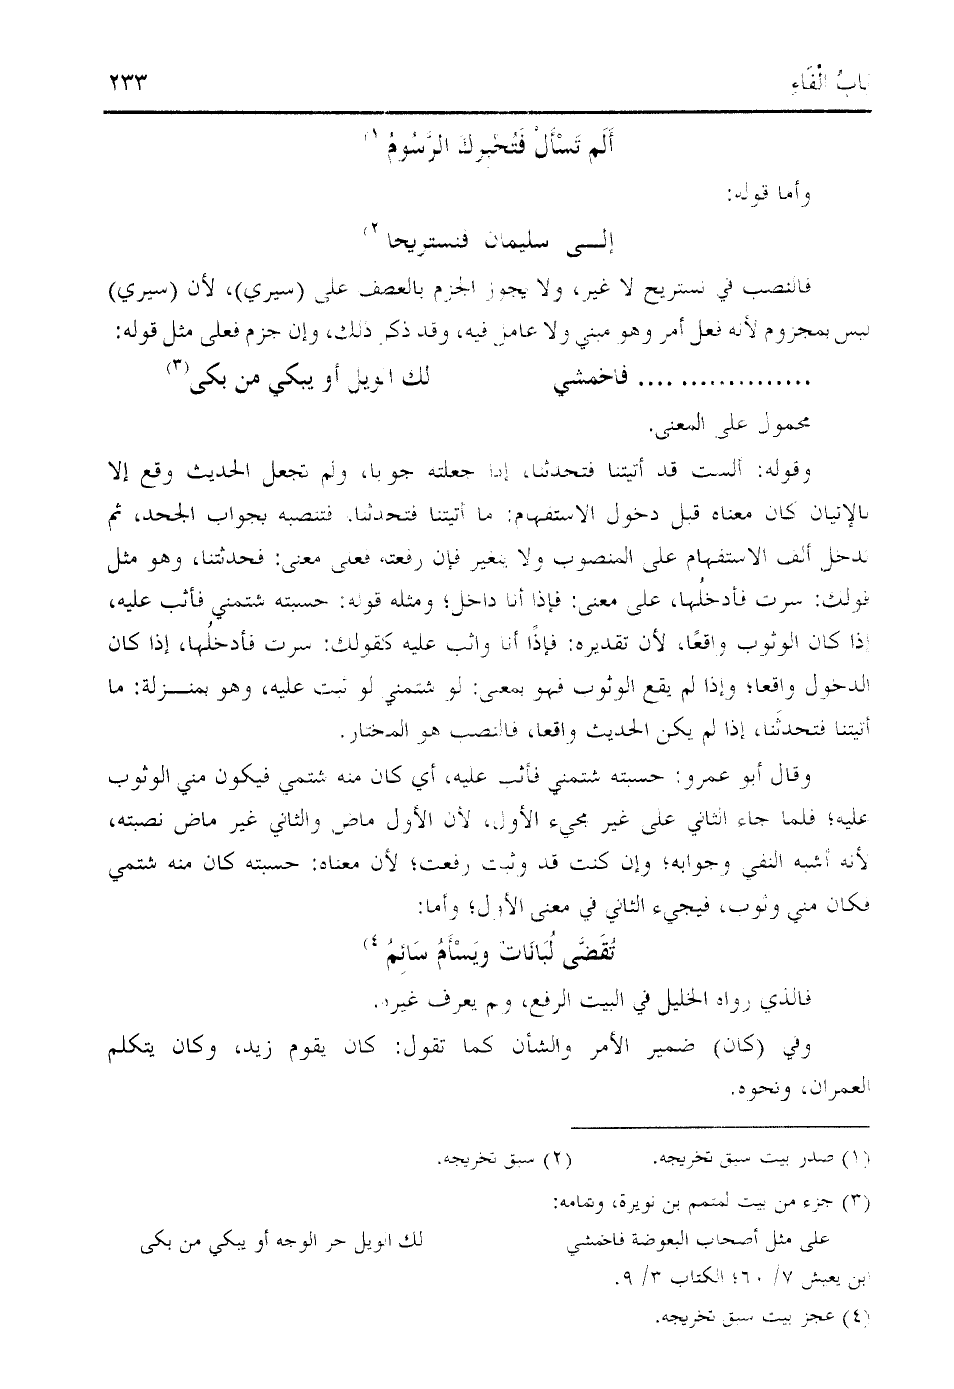 بَابُ الْفَاءِ ٢٣٣
أَلَم تَسْأَلْ فَتُخْبِرِكَ الرَّسُومُ (١)
وأما قوله:
إلــى سليمان فنستريحا (٢)
فالنصب في نستريح لا غير، ولا يجوز الجزم بالعصف على (سيري)، لأن (سيري)
ليس بمجزوم لأنه فعل أمر وهو مبني ولا عامل فيه، وقد ذكر ذلك، وإن جزم فعلى مثل قوله:
................... فاخمشي لك الويل أو يبكي من بكى(٣)
محمول على المعنى.
وقوله: ألست قد أتيتنا فتحدثنا، إذا جعلته جوبا، ولم تجعل الحديث وقع إلا
بالإتيان كان معناه قبل دخول الاستفهام: ما أتيتنا فتحدثنا. فتنصبه بجواب الجحد، ثم
تدخل ألف الاستفهام على المنصوب ولا يتغير فإن رفعته فعلى معنى: فحدثتنا، وهو مثل
قولك: سرت فأدخلُها، على معنى: فإذا أنا داخل؛ ومثله قوله: حسبته شتمني فأثب عليه،
إذا كان الوثوب واقعًا، لأن تقديره: فإذًا أنا واثب عليه كقولك: سرت فأدخلُها، إذا كان
الدخول واقعا؛ وإذا لم يقع الوثوب فهو بمعنى: لو شتمني لو ثبت عليه، وهو بمنــزلة: ما
أتيتنا فتحدثَنا، إذا لم يكن الحديث واقعا، فالنصب هو المختار.
وقال أبو عمرو: حسبته شتمني فأثب عليه، أي كان منه شتمي فيكون مني الوثوب
عليه؛ فلما جاء الثاني على غير مجيء الأول، لأن الأول ماض والثاني غير ماض نصبته،
لأنه أشبه النفي وجوابه؛ وإن كنت قد وثبت رفعت؛ لأن معناه: حسبته كان منه شتمي
فكان مني وثوب، فيجيء الثاني في معنى الأول؛ وأما:
تُقَضَّى لُبَانَات ويَسْأَمُ سَائِمُ (٤)
فالذي رواه الخليل في البيت الرفع، ولم يعرف غيره.
وفي (كان) ضمير الأمر والشأن كما تقول: كان يقوم زيد، وكان يتكلم
العمران، ونحوه.
(١) صدر بيت سبق تخريجه. (٢) سبق تخريجه.
(٣) جزء من بيت لمتمم بن نويرة، وتمامه:
على مثل أصحاب البعوضة فاخمشي لك الويل حر الوجه أو يبكي من بكى
ابن يعيش ٧/ ٦٠؛ الكتاب ٣/ ٩.
(٤) عجز بيت سبق تخريجه.